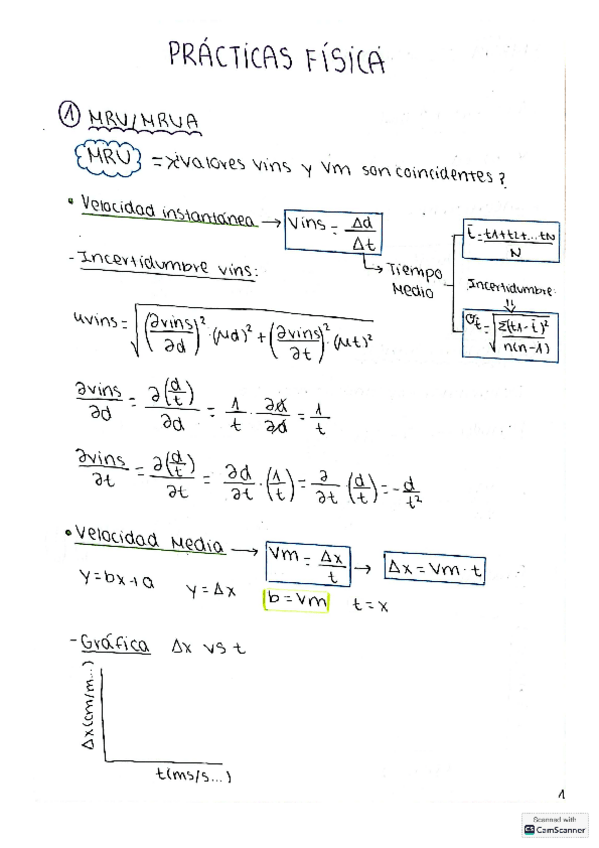 PRÁCTICAS FÍSICA
① MRU/MRUA
MRU = ¿valores vins y vm son coincidentes?
• Velocidad instantánea → Vins = Δd/Δt
→ Tiempo Medio
t̄ = t1+t2+...tN/N
Incertidumbre
⇓
σt̄ = √(Σ(t1-t̄)²/n(n-1))
- Incertidumbre vins:
uvins = √((∂vins/∂d)²·(μd)² + (∂vins/∂t)²·(μt)²)
∂vins/∂d = ∂(d/t)/∂d = 1/t · ∂d/∂d = 1/t
∂vins/∂t = ∂(d/t)/∂t = ∂d/∂t · (1/t) = ∂/∂t (d/t) = -d/t²
• Velocidad Media → Vm = Δx/t → Δx = Vm · t
y=bx+a y=Δx b=Vm t=x
- Gráfica Δx vs t
Δx(cm/m...)
t(ms/s...)
1
Scanned with
CS CamScanner